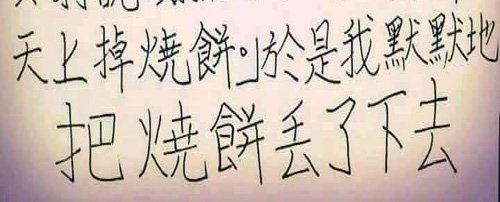 天上掉燒餅。」於是我默默地
把燒餅丟了下去